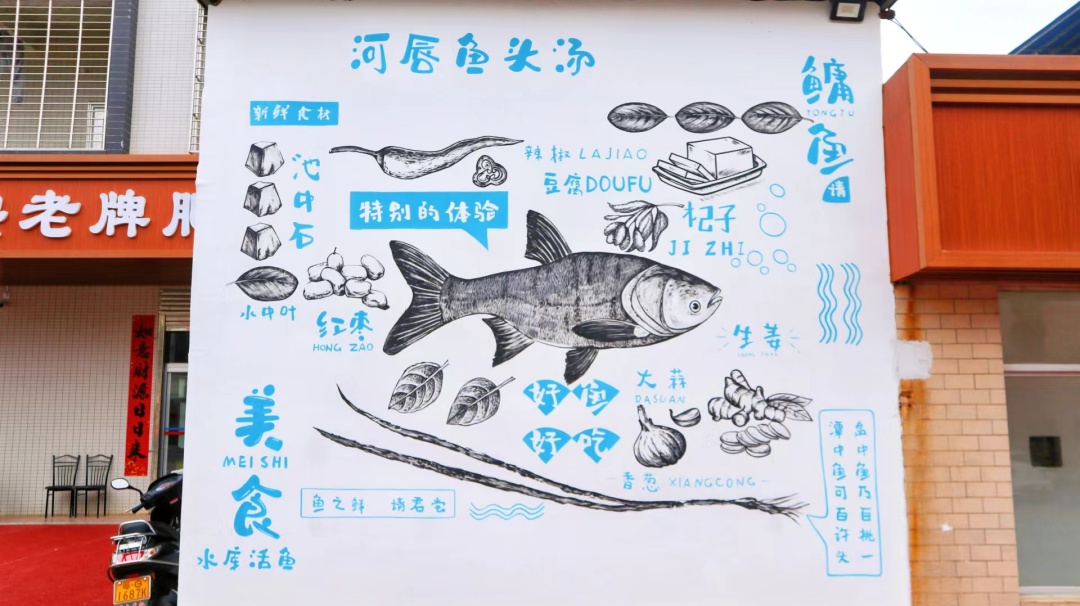 河唇鱼头汤
鳙鱼
YONGYU
请
新鲜食材
池中石
辣椒 LAJIAO
豆腐DOUFU
特别的体验
杞子
JI ZHI
水中叶
红枣
HONG ZAO
生姜
大蒜
DASUAN
好鱼
好吃
香葱 XIANGCONG
美食
MEI SHI
水库活鱼
鱼之鲜 请君尝
盘中鱼乃百挑一
潭中鱼可百许头
老牌
如意财源日日来
1687K